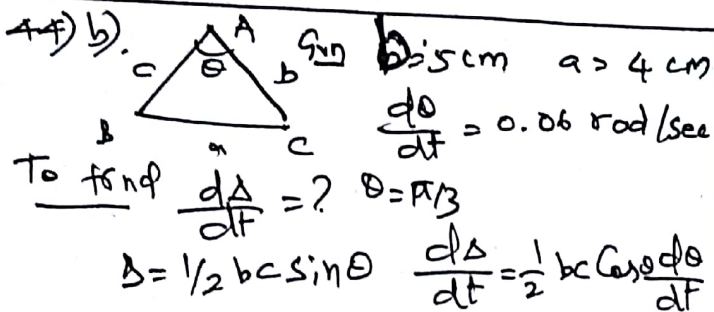 44) b). A Gvn b=5cm a = 4 cm
c θ b
B a C dθ/dt = 0.06 rad/sec
To find dΔ/dt = ? θ=π/3
Δ = 1/2 bc sinθ dΔ/dt = 1/2 bc Cosθ dθ/dt